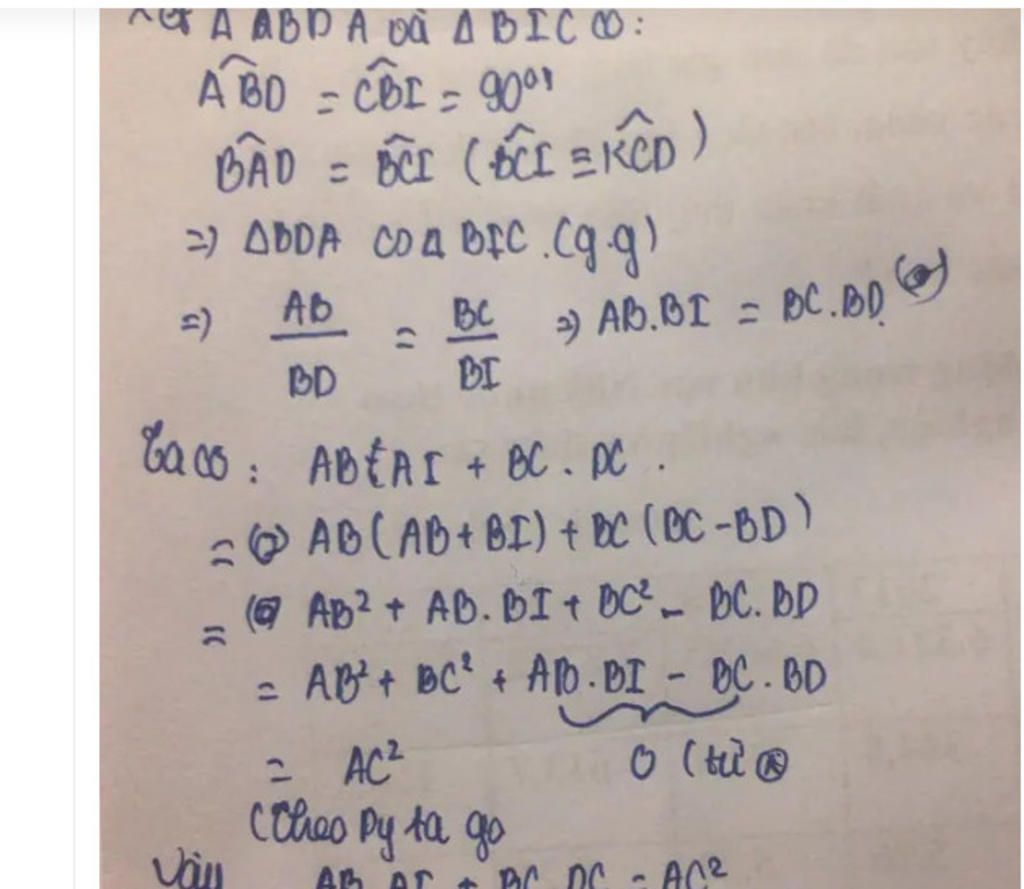 Xét Δ ABD A và Δ BIC có:
ABD = CBI = 90°,
BAD = BCI (BCI ≡ KCD)
=> ΔBDA ∽ Δ BIC. (g.g)
=> AB/BD = BC/BI => AB.BI = BC.BD (*)
Ta có: AB.AI + BC.DC.
= AB(AB+BI)+BC(BC-BD)
= AB² + AB.BI + BC² - BC.BD
= AB² + BC² + AB.BI - BC.BD
= AC² 0 (từ *)
(Theo Pytago
Vậy AB.AI + BC.DC = AC²